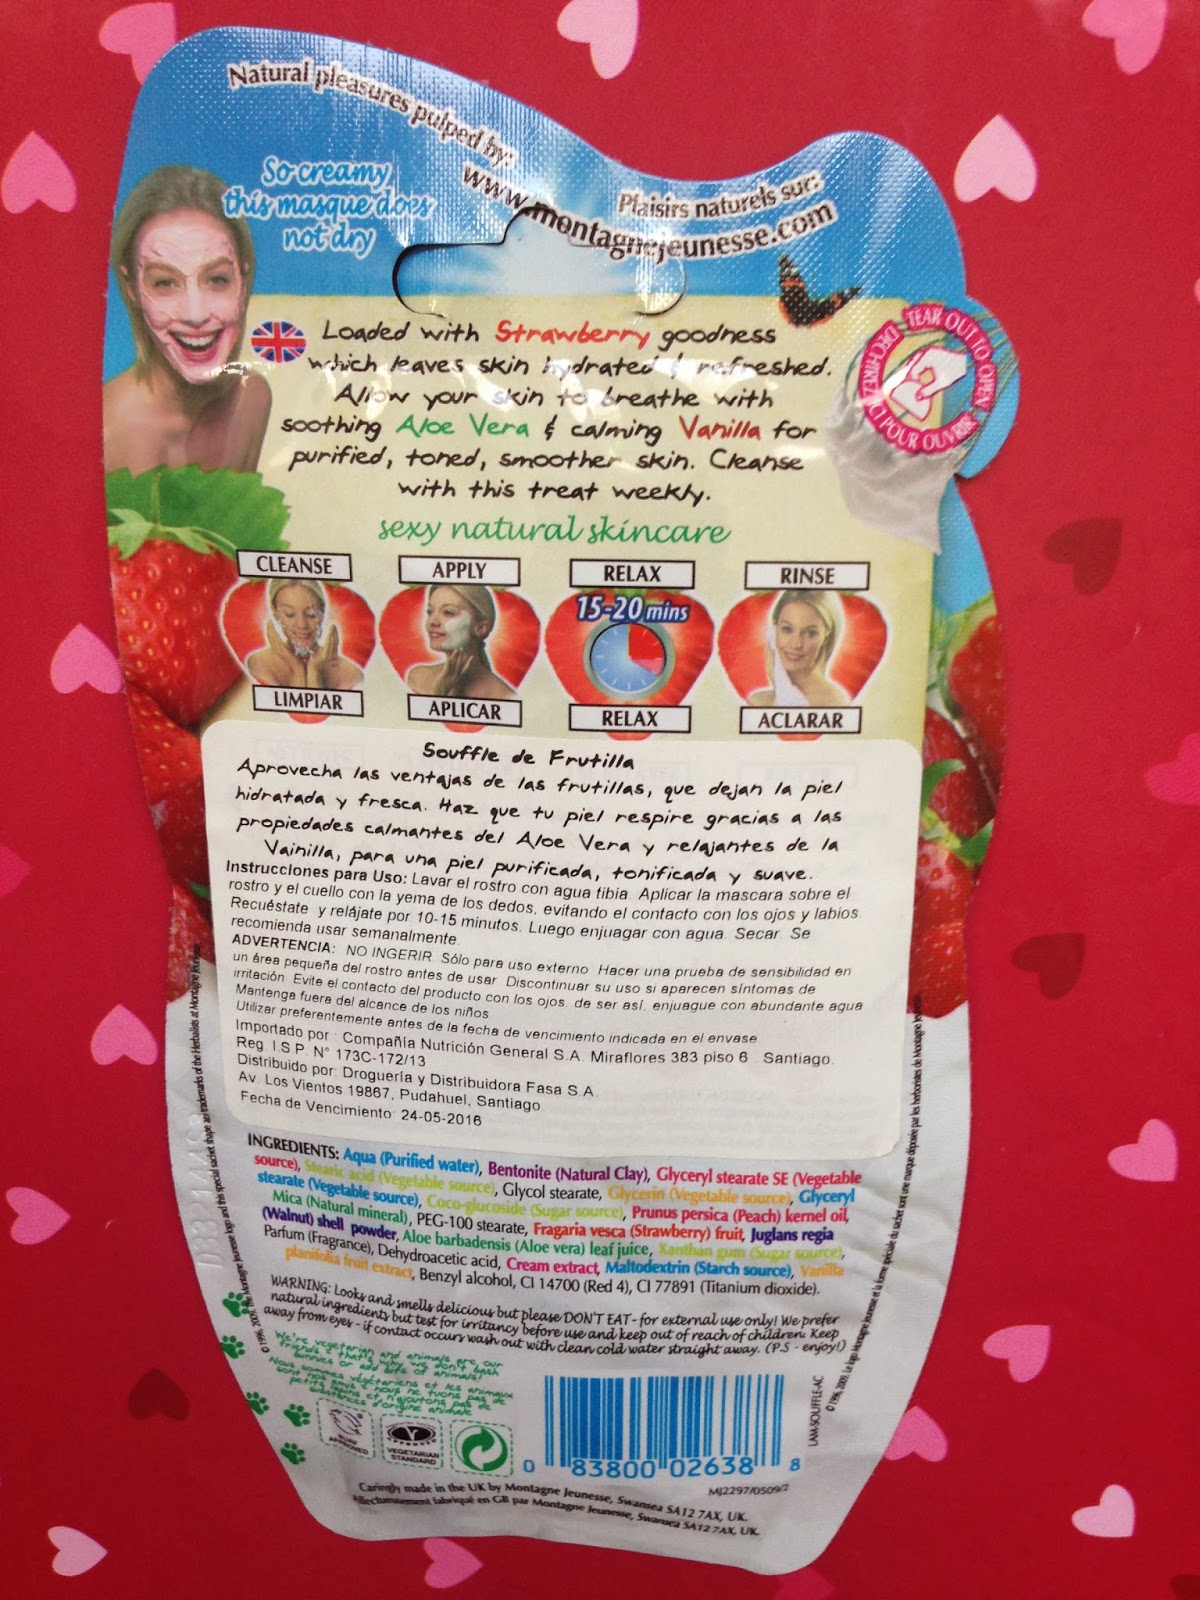 Natural pleasures pulped by:
Plaisirs naturels sur:
www.montagnejeunesse.com
So creamy
this masque does
not dry
TEAR OUT TO OPEN
DECHIREZ ICI POUR OUVRIR
Loaded with Strawberry goodness
which leaves skin hydrated & refreshed.
Allow your skin to breathe with
soothing Aloe Vera & calming Vanilla for
purified, toned, smoother skin. Cleanse
with this treat weekly.
sexy natural skincare
CLEANSE APPLY RELAX RINSE
15-20 mins
LIMPIAR APLICAR RELAX ACLARAR
Souffle de Frutilla
Aprovecha las ventajas de las frutillas, que dejan la piel
hidratada y fresca. Haz que tu piel respire gracias a las
propiedades calmantes del Aloe Vera y relajantes de la
Vainilla, para una piel purificada, tonificada y suave.
Instrucciones para Uso: Lavar el rostro con agua tibia. Aplicar la mascara sobre el
rostro y el cuello con la yema de los dedos, evitando el contacto con los ojos y labios.
Recuéstate y relájate por 10-15 minutos. Luego enjuagar con agua. Secar. Se
recomienda usar semanalmente.
ADVERTENCIA: NO INGERIR. Sólo para uso externo. Hacer una prueba de sensibilidad en
un área pequeña del rostro antes de usar. Discontinuar su uso si aparecen síntomas de
irritación. Evite el contacto del producto con los ojos, de ser así, enjuague con abundante agua
Mantenga fuera del alcance de los niños
Utilizar preferentemente antes de la fecha de vencimiento indicada en el envase
Importado por : Compañía Nutrición General S.A. Miraflores 383 piso 6 . Santiago.
Reg. I.S.P. N° 173C-172/13
Distribuido por: Droguería y Distribuidora Fasa S.A.
Av. Los Vientos 19867, Pudahuel, Santiago
Fecha de Vencimiento: 24-05-2016
INGREDIENTS: Aqua (Purified water), Bentonite (Natural Clay), Glyceryl stearate SE (Vegetable
source), Stearic acid (Vegetable source), Glycol stearate, Glycerin (Vegetable source), Glyceryl
stearate (Vegetable source), Coco-glucoside (Sugar source), Prunus persica (Peach) kernel oil,
Mica (Natural mineral), PEG-100 stearate, Fragaria vesca (Strawberry) fruit, Juglans regia
(Walnut) shell powder, Aloe barbadensis (Aloe vera) leaf juice, Xanthan gum (Sugar source),
Parfum (Fragrance), Dehydroacetic acid, Cream extract, Maltodextrin (Starch source), Vanilla
planifolia fruit extract, Benzyl alcohol, CI 14700 (Red 4), CI 77891 (Titanium dioxide).
WARNING: Looks and smells delicious but please DON'T EAT - for external use only! We prefer
natural ingredients but test for irritancy before use and keep out of reach of children. Keep
away from eyes - if contact occurs wash out with clean cold water straight away. (P.S - enjoy!)
We're vegetarian and animals are our
friends & that's why we don't bash
bunnies or add bits of animals!
Nous sommes végétariens et les animaux
sont nos amis & nous ne tuons pas de
petits lapins et n'ajoutons pas de
substances d'origine animale
BUAV
APPROVED
APPROVED
VEGETARIAN
STANDARD
0 83800 02638 8
MJ2297/0509/2
LAM-SOUFFLE-AC
Caringly made in the UK by Montagne Jeunesse, Swansea SA12 7AX, UK.
Affectueusement fabriqué en GB par Montagne Jeunesse, Swansea SA12 7AX, UK.
© 1996, 2009. The Montagne Jeunesse logo and this special sachet shape are trademarks of the Herbalists at Montagne Jeunesse
© 1996, 2009. Le logo Montagne Jeunesse et la forme spéciale du sachet sont une marque déposée par les herboristes de Montagne Jeunesse